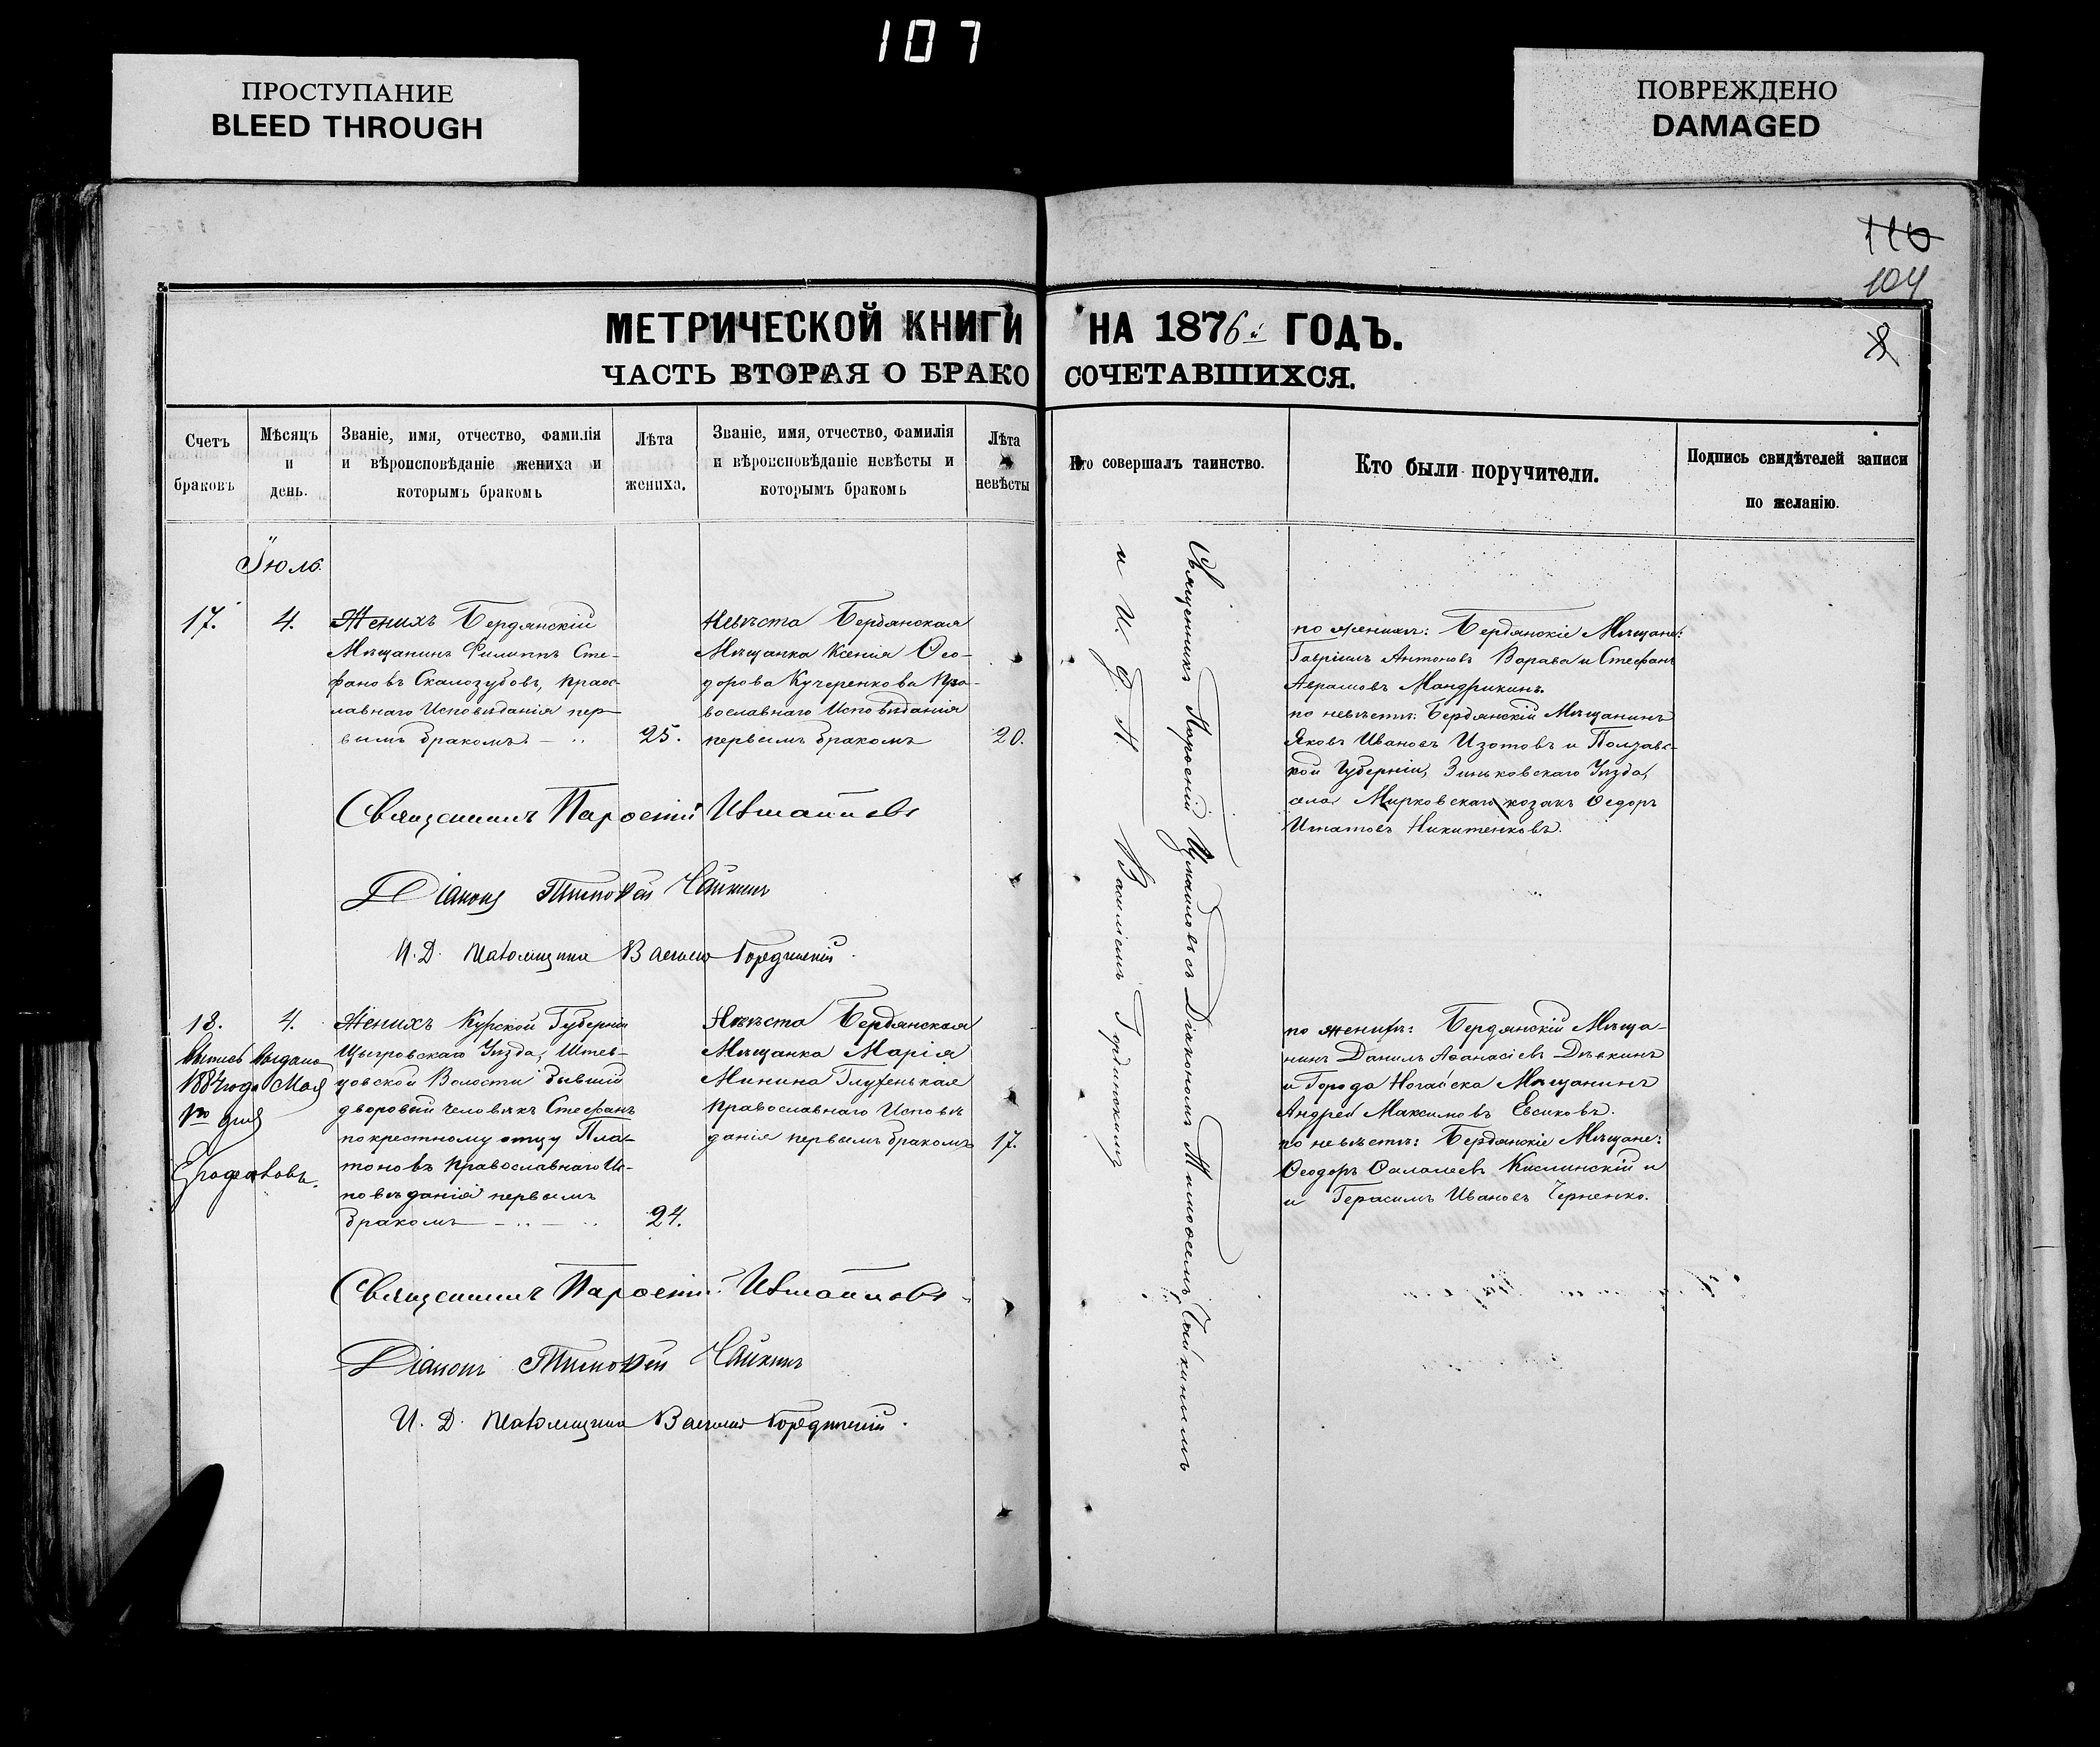 107
ПРОСТУПАНИЕ
BLEED THROUGH
ПОВРЕЖДЕНО
DAMAGED
110
104
8
МЕТРИЧЕСКОЙ КНИГИ НА 1876й ГОДЪ.
ЧАСТЬ ВТОРАЯ О БРАКОСОЧЕТАВШИХСЯ.
Счетъ
браковъ
Мѣсяцъ
и
день.
Званіе, имя, отчество, фамилія
и вѣроисповѣданіе жениха и
которымъ бракомъ
Лѣта
жениха.
Званіе, имя, отчество, фамилія
и вѣроисповѣданіе невѣсты и
которымъ бракомъ
Лѣта
невѣсты
Кто совершалъ таинство.
Кто были поручители.
Подпись свидѣтелей записи
по желанію.
Іюль
17.
4.
Женихъ Бердянскій
Мѣщанинъ Филиппъ Сте-
фановъ Скалозубовъ, правос-
лавнаго Исповѣданія пер-
вымъ бракомъ.
25.
Невѣста Бердянская
Мѣщанка Ксенія Ѳео-
дорова Кучеренкова Пра-
вославнаго Исповѣданія
первымъ бракомъ
20.
Священникъ Парѳеній
Діаконъ Тимоѳей Чайкинъ
И. Д. Псаломщика Василій Гординскій
18.
4.
Выпись выдана
1884 года Мая
1го дня
Женихъ Курской Губерніи
Щигровскаго Уѣзда,
Волости бывшій
дворовый человѣкъ Стефанъ
по крестному отцу Пла-
тоновъ Православнаго Ис-
повѣданія первымъ
бракомъ
24.
Невѣста Бердянская
Мѣщанка Марія
Минина Глуженькая
Православнаго Исповѣ
данія первымъ бракомъ
17.
Священникъ Парѳеній
Діаконъ Тимоѳей Чайкинъ
И. Д. Псаломщика Василій Гординскій.
Священникъ Парѳеній съ Діакономъ Тимоѳеемъ Чайкинымъ
и И. д. П. Василіемъ Гординскимъ
по женихѣ: Бердянскіе Мѣщане:
Гавріилъ Антоновъ Варава и Стефанъ
Аврамовъ Мандрикинъ.
по невѣстѣ: Бердянскій Мѣщанинъ
Яковъ Ивановъ Изотовъ и Полтавс-
кой Губерніи, Зиньковскаго Уѣзда,
села козакъ Ѳедоръ
Игнатовъ Никитенковъ.
по женихѣ: Бердянскій Мѣща-
нинъ Данилъ Аѳанасіевъ Дѣвкинъ
и Города Ногайска Мѣщанинъ
Андрей Максимовъ Евсиковъ.
по невѣстѣ: Бердянскіе Мѣщане:
Ѳеодоръ Кислинскій и
и Герасимъ Ивановъ Черненко.